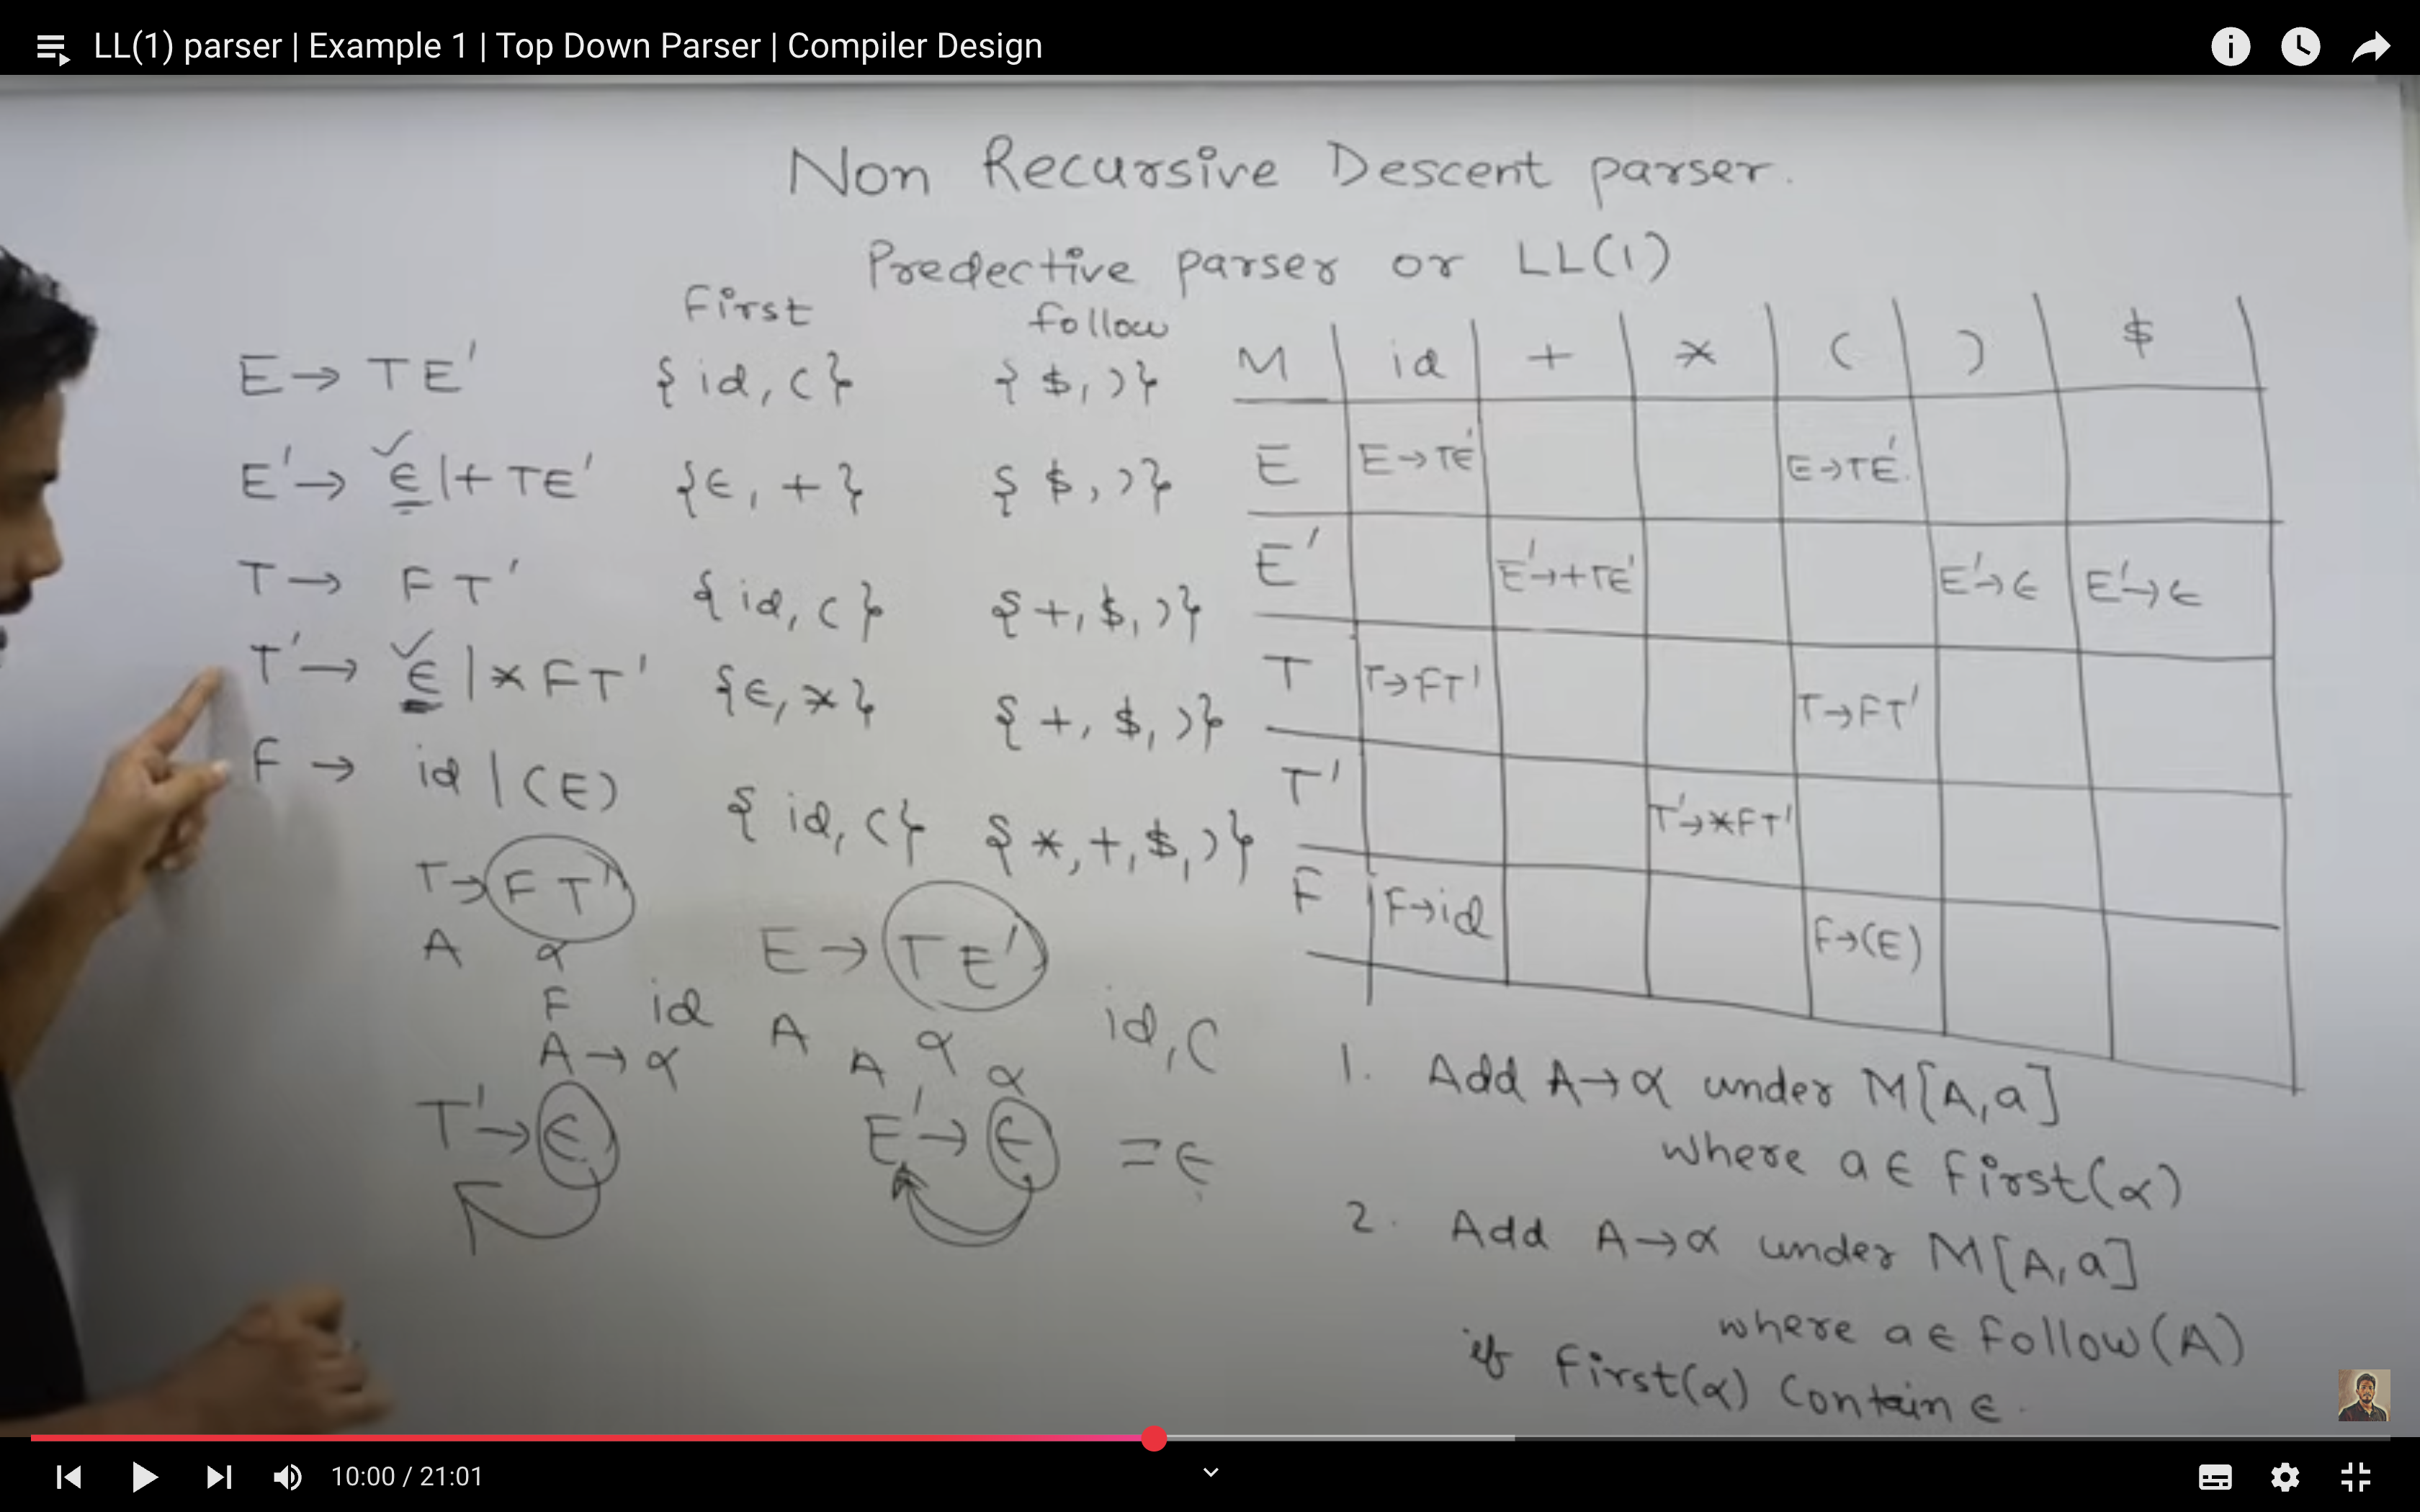 LL(1) parser | Example 1 | Top Down Parser | Compiler Design
Non Recursive Descent parser.
Predective parser or LL(1)
First
follow
E → TE' {id, (} {$, )}
E' → ϵ | + TE' {ϵ, +} {$, )}
T → F T' {id, (} {+, $, )}
T' → ϵ | * F T' {ϵ, *} {+, $, )}
F → id | (E) {id, (} {*, +, $, )}
M id + * ( ) $
E E→TE' E→TE'.
E' E'→+TE' E'→ϵ E'→ϵ
T T→FT' T→FT'
T' T'→*FT'
F F→id F→(E)
T→ F T'
A α
F id
A → α
T' → ϵ
E → T E'
A α id, (
A α
E' → ϵ = ϵ
1. Add A→α under M[A,a]
where a ϵ First(α)
2. Add A→α under M[A,a]
where a ϵ Follow(A)
if First(α) Contain ϵ.
10:00 / 21:01